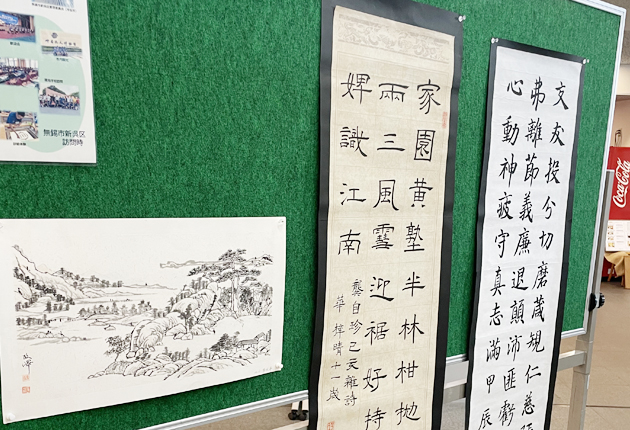 無錫市新呉区
訪問時
家園黄塾半林柑拋
兩三風雪迎裾好持
婢識江南
龔自珍己亥雜詩
華梓晴十一歳
交友投分切磨箴規仁慈
弗離節義廉退顛沛匪虧
心動神疲守真志滿甲辰
Coca-Cola